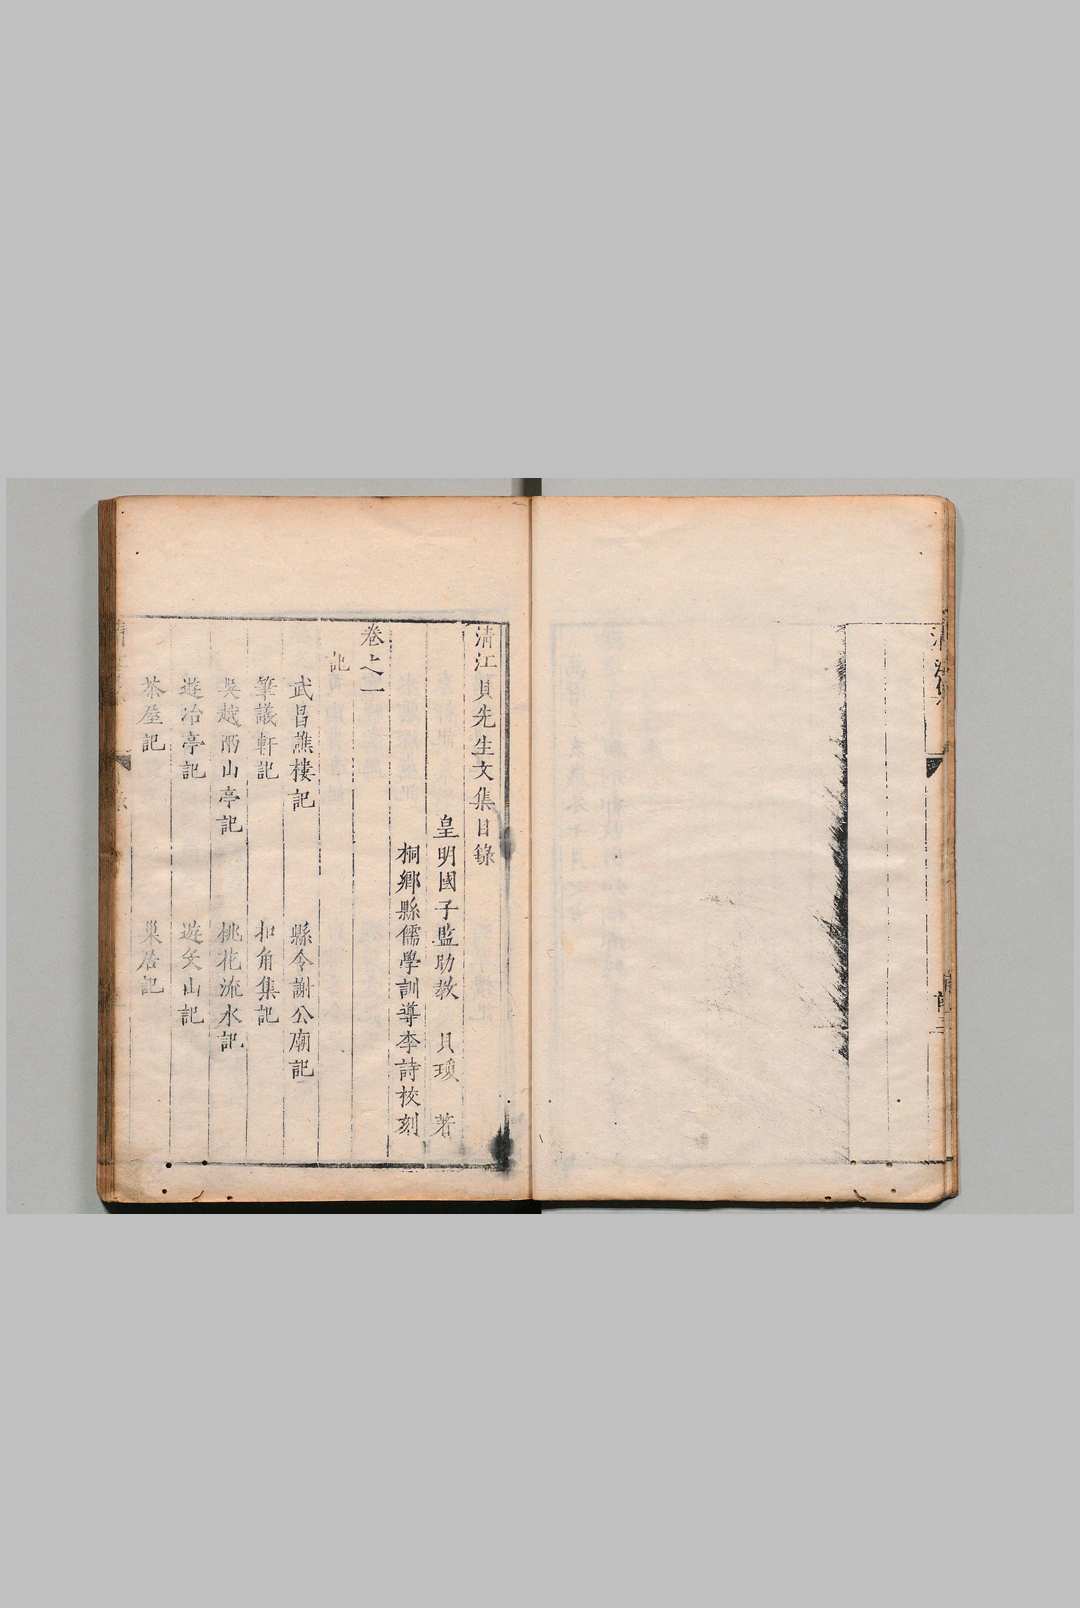 清江貝先生文集目錄
皇明國子監助教 貝瓊 著
桐鄉縣儒學訓導李詩校刻
卷之一
記
武昌譙樓記 縣令謝公廟記
筆議軒記 扣角集記
吳越兩山亭記 桃花流水記
遊冶亭記 遊矣山記
茶屋記 巢居記